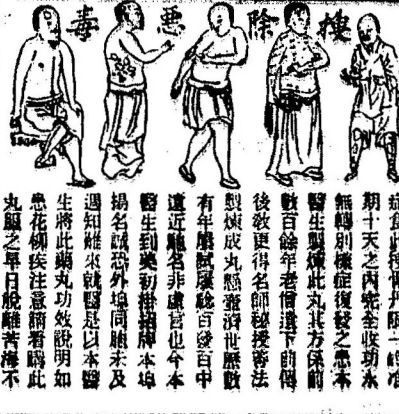 搜除惡毒
症食此搜骨丹限一
期十天之內完全收功永
無轉別樣症復發之患本
醫生製煉此丸其方係前
數百餘年老僧遺下前傳
後教更得名師秘授審法
製煉成丸懸壺濟世歷數
有年屢試屢驗百發百中
遠近馳名非虛言也今本
醫生到美初掛招牌本埠
揚名誠恐外埠同胞未及
週知難來就醫是以本醫
生將此藥丸功效說明如
患花柳疾注意請看購此
丸服之早日脫離苦海不